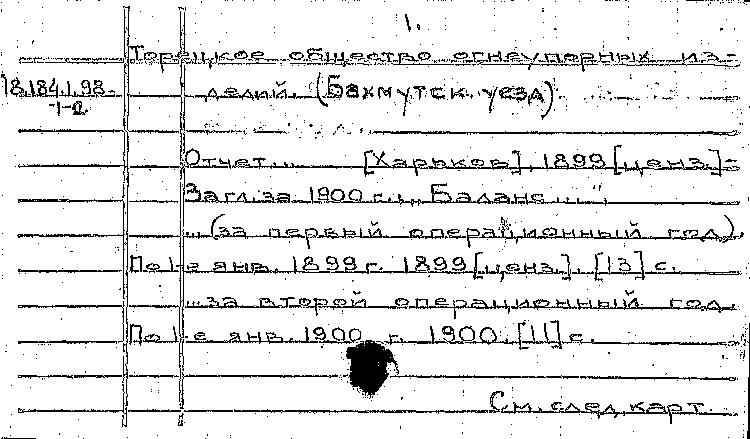 1.
Торецкое общество огнеупорных из-
18.184.1.98-
-1-2
делий. (Бахмутск. уезд)
Отчет... [Харьков], 1899 [ценз.]-
Загл. за 1900 г.: „Баланс..."
...(за первый операционный год).
По 1-е янв. 1899 г. 1899 [ценз.]. [13] с.
...за второй операционный год.
По 1-е янв. 1900 г. 1900. [11] с.
См. след. карт.